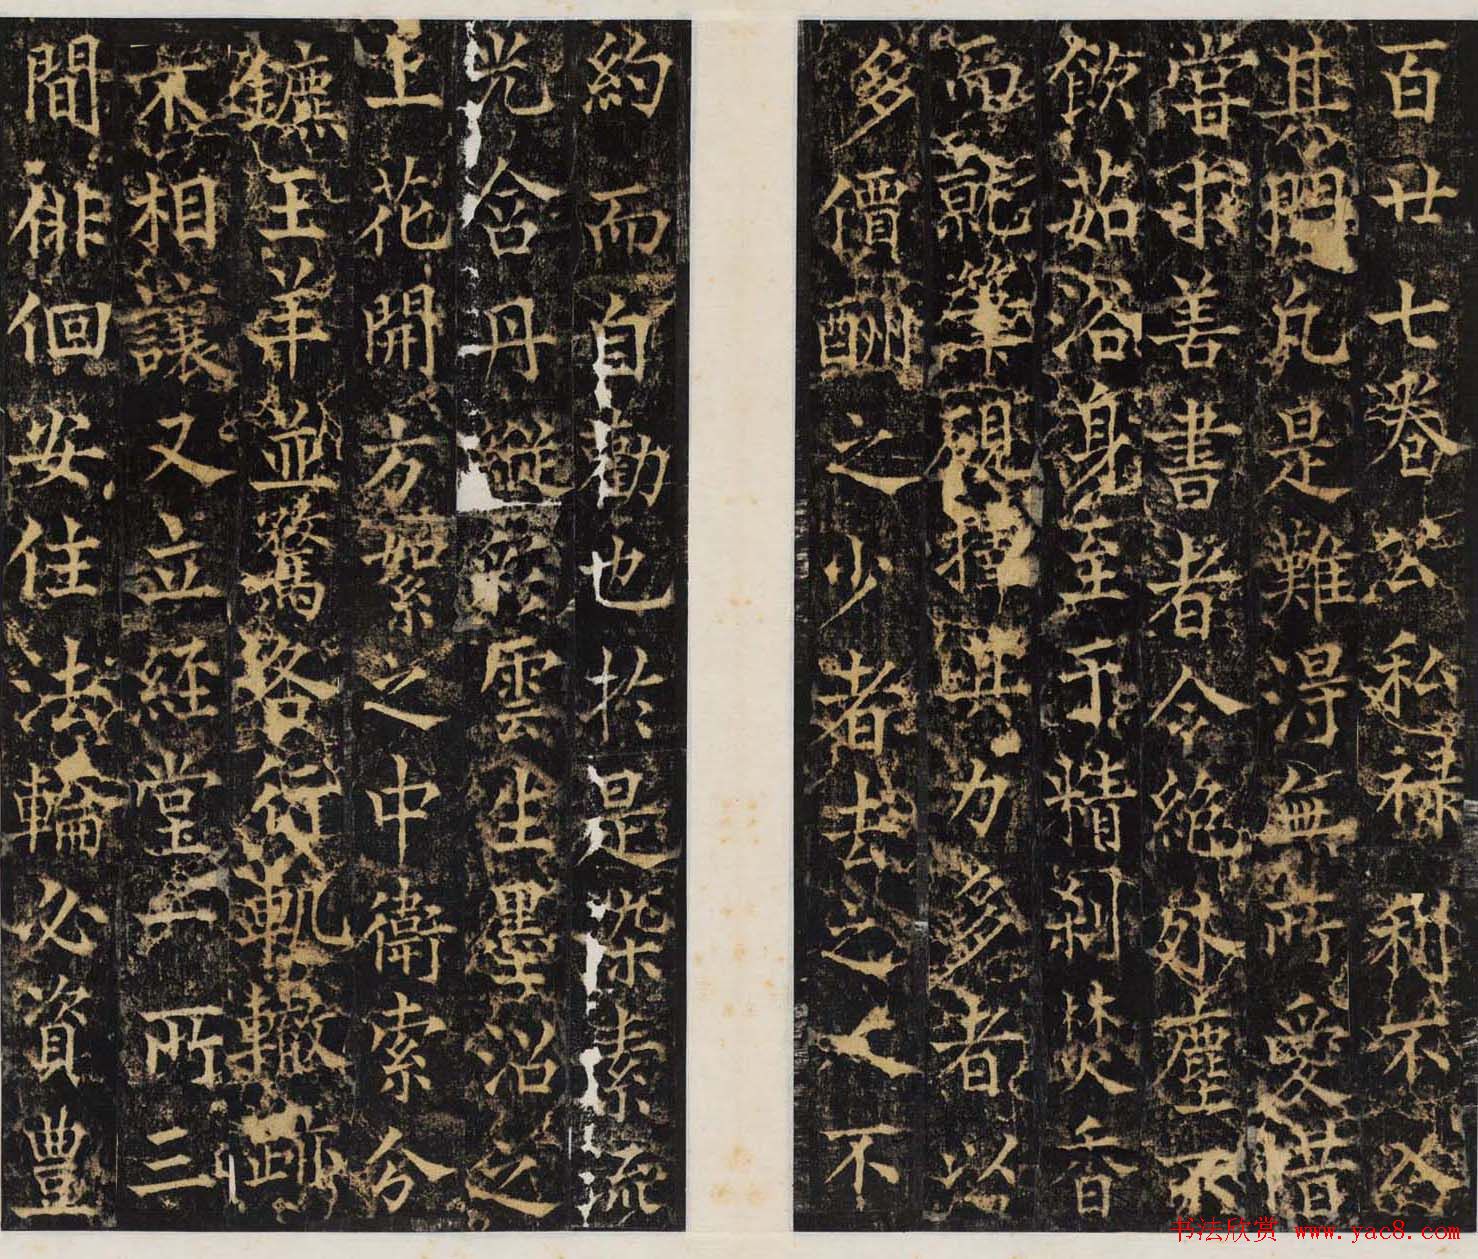 百廿七卷公私禄利不入
其門凡是難得無所愛惜
嘗求善書者令絶外塵不
飲茹浴身至于精剋焚香
而就筆硯擇其力多者以
多價酬之少者去之人不
約而自勸也於是染素流
光含丹縱彩雲生墨沼之
上花開方絮之中衛索分
鑣王羊並騖各行軌轍跡
不相讓又立經堂一所三
間俳佪安住法輪必資豊
书法欣赏 www.yac8.com